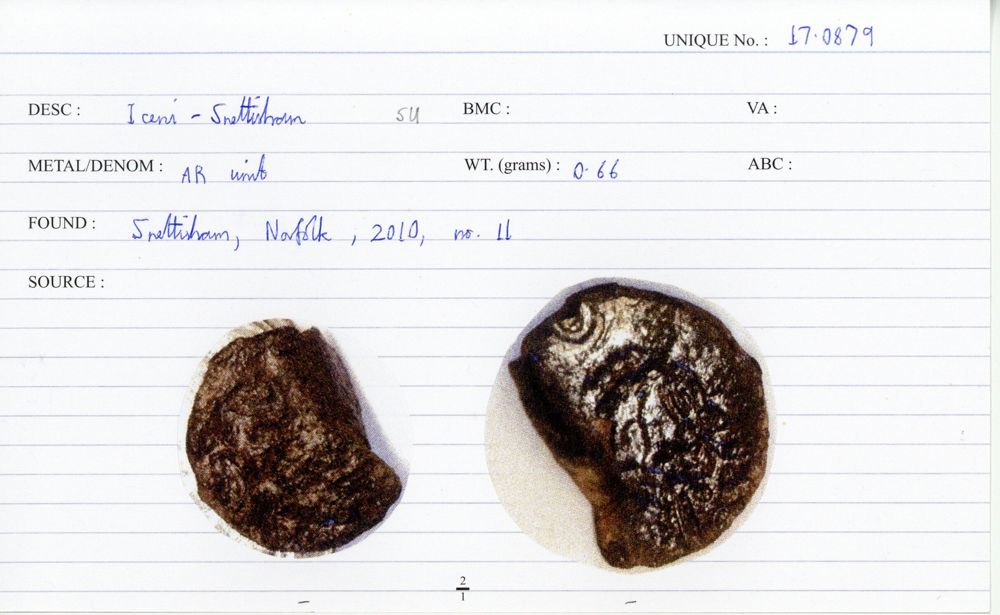 UNIQUE No. : 17.0879
DESC : Iceni - Snettisham SU BMC : VA :
METAL/DENOM : AR unit WT. (grams) : 0.66 ABC :
FOUND : Snettisham, Norfolk, 2010, no. 11
SOURCE :
2
1